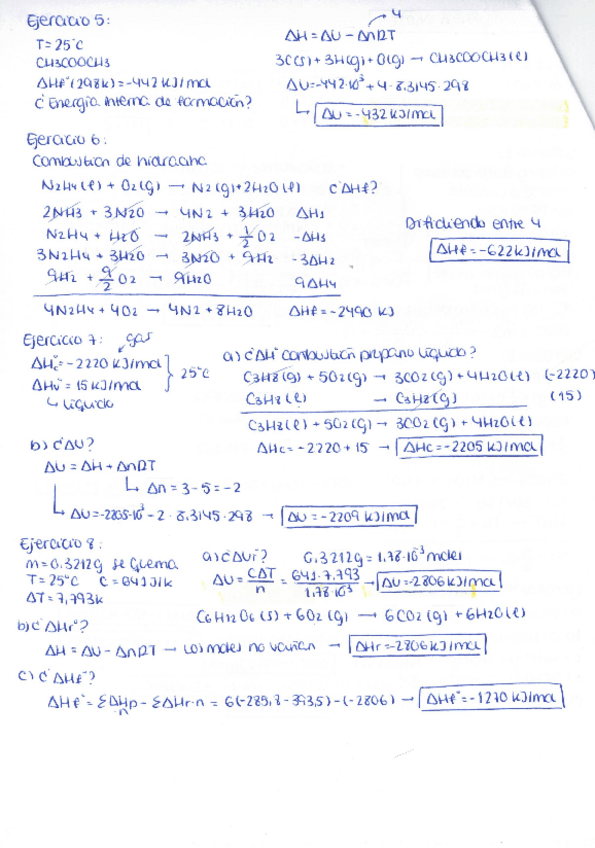 Ejercicio 5:
T=25°C
CH3COOCH3
ΔHf°(298K)=-442 KJ/mol
¿Energía interna de formación?
4
ΔH=ΔU - ΔnRT
3C(s)+3H(g)+O(g) → CH3COOCH3(l)
ΔU=-442·10³+4·8.3145·298
↳ ΔU=-432KJ/mol
Ejercicio 6:
Combustión de hidracina
N2H4(l) + O2(g) → N2(g)+2H2O(l) ¿ΔHf?
2NH3 + 3N2O → 4N2 + 3H2O ΔH1
N2H4 + H2O → 2NH3 + 1/2 O2 -ΔH3
3N2H4 + 3H2O → 3N2O + 9H2 -3ΔH2
9H2 + 9/2 O2 → 9H2O 9ΔH4
4N2H4 + 4O2 → 4N2 + 8H2O ΔHf=-2490 KJ
Dividiendo entre 4
ΔHf=-622KJ/mol
Ejercicio 7: gas
ΔHc°=-2220 KJ/mol
ΔHv°=15KJ/mol } 25°C
↳ líquido
a) ¿ΔH° combustión propano líquido?
C3H8(g) + 5O2(g) → 3CO2(g)+4H2O(l) (-2220)
C3H8(l) → C3H8(g) (15)
C3H8(l) + 5O2(g) → 3CO2(g) + 4H2O(l)
ΔHc=-2220+15 → ΔHc=-2205KJ/mol
b) ¿ΔU?
ΔU=ΔH+ΔnRT
↳ Δn=3-5=-2
↳ ΔU=-2205·10³-2·8.3145·298 → ΔU=-2209KJ/mol
Ejercicio 8:
m=0.3212g se quema
T=25°C C=641J/K
ΔT=7,793K
a) ¿ΔUr? 0.3212g=1.78·10⁻³moles
ΔU=CΔT/n=641·7.793/1.78·10⁻³→ΔU=-2806KJ/mol
C6H12O6(s)+6O2(g) → 6CO2(g)+6H2O(l)
b) ¿ΔHr°?
ΔH=ΔU-ΔnRT → Los moles no varían → ΔHr=-2806KJ/mol
c) ¿ΔHf°?
ΔHf°=ΣΔHp·n-ΣΔHr·n=6(-285,8-393,5)-(-2806) → ΔHf°=-1270KJ/mol